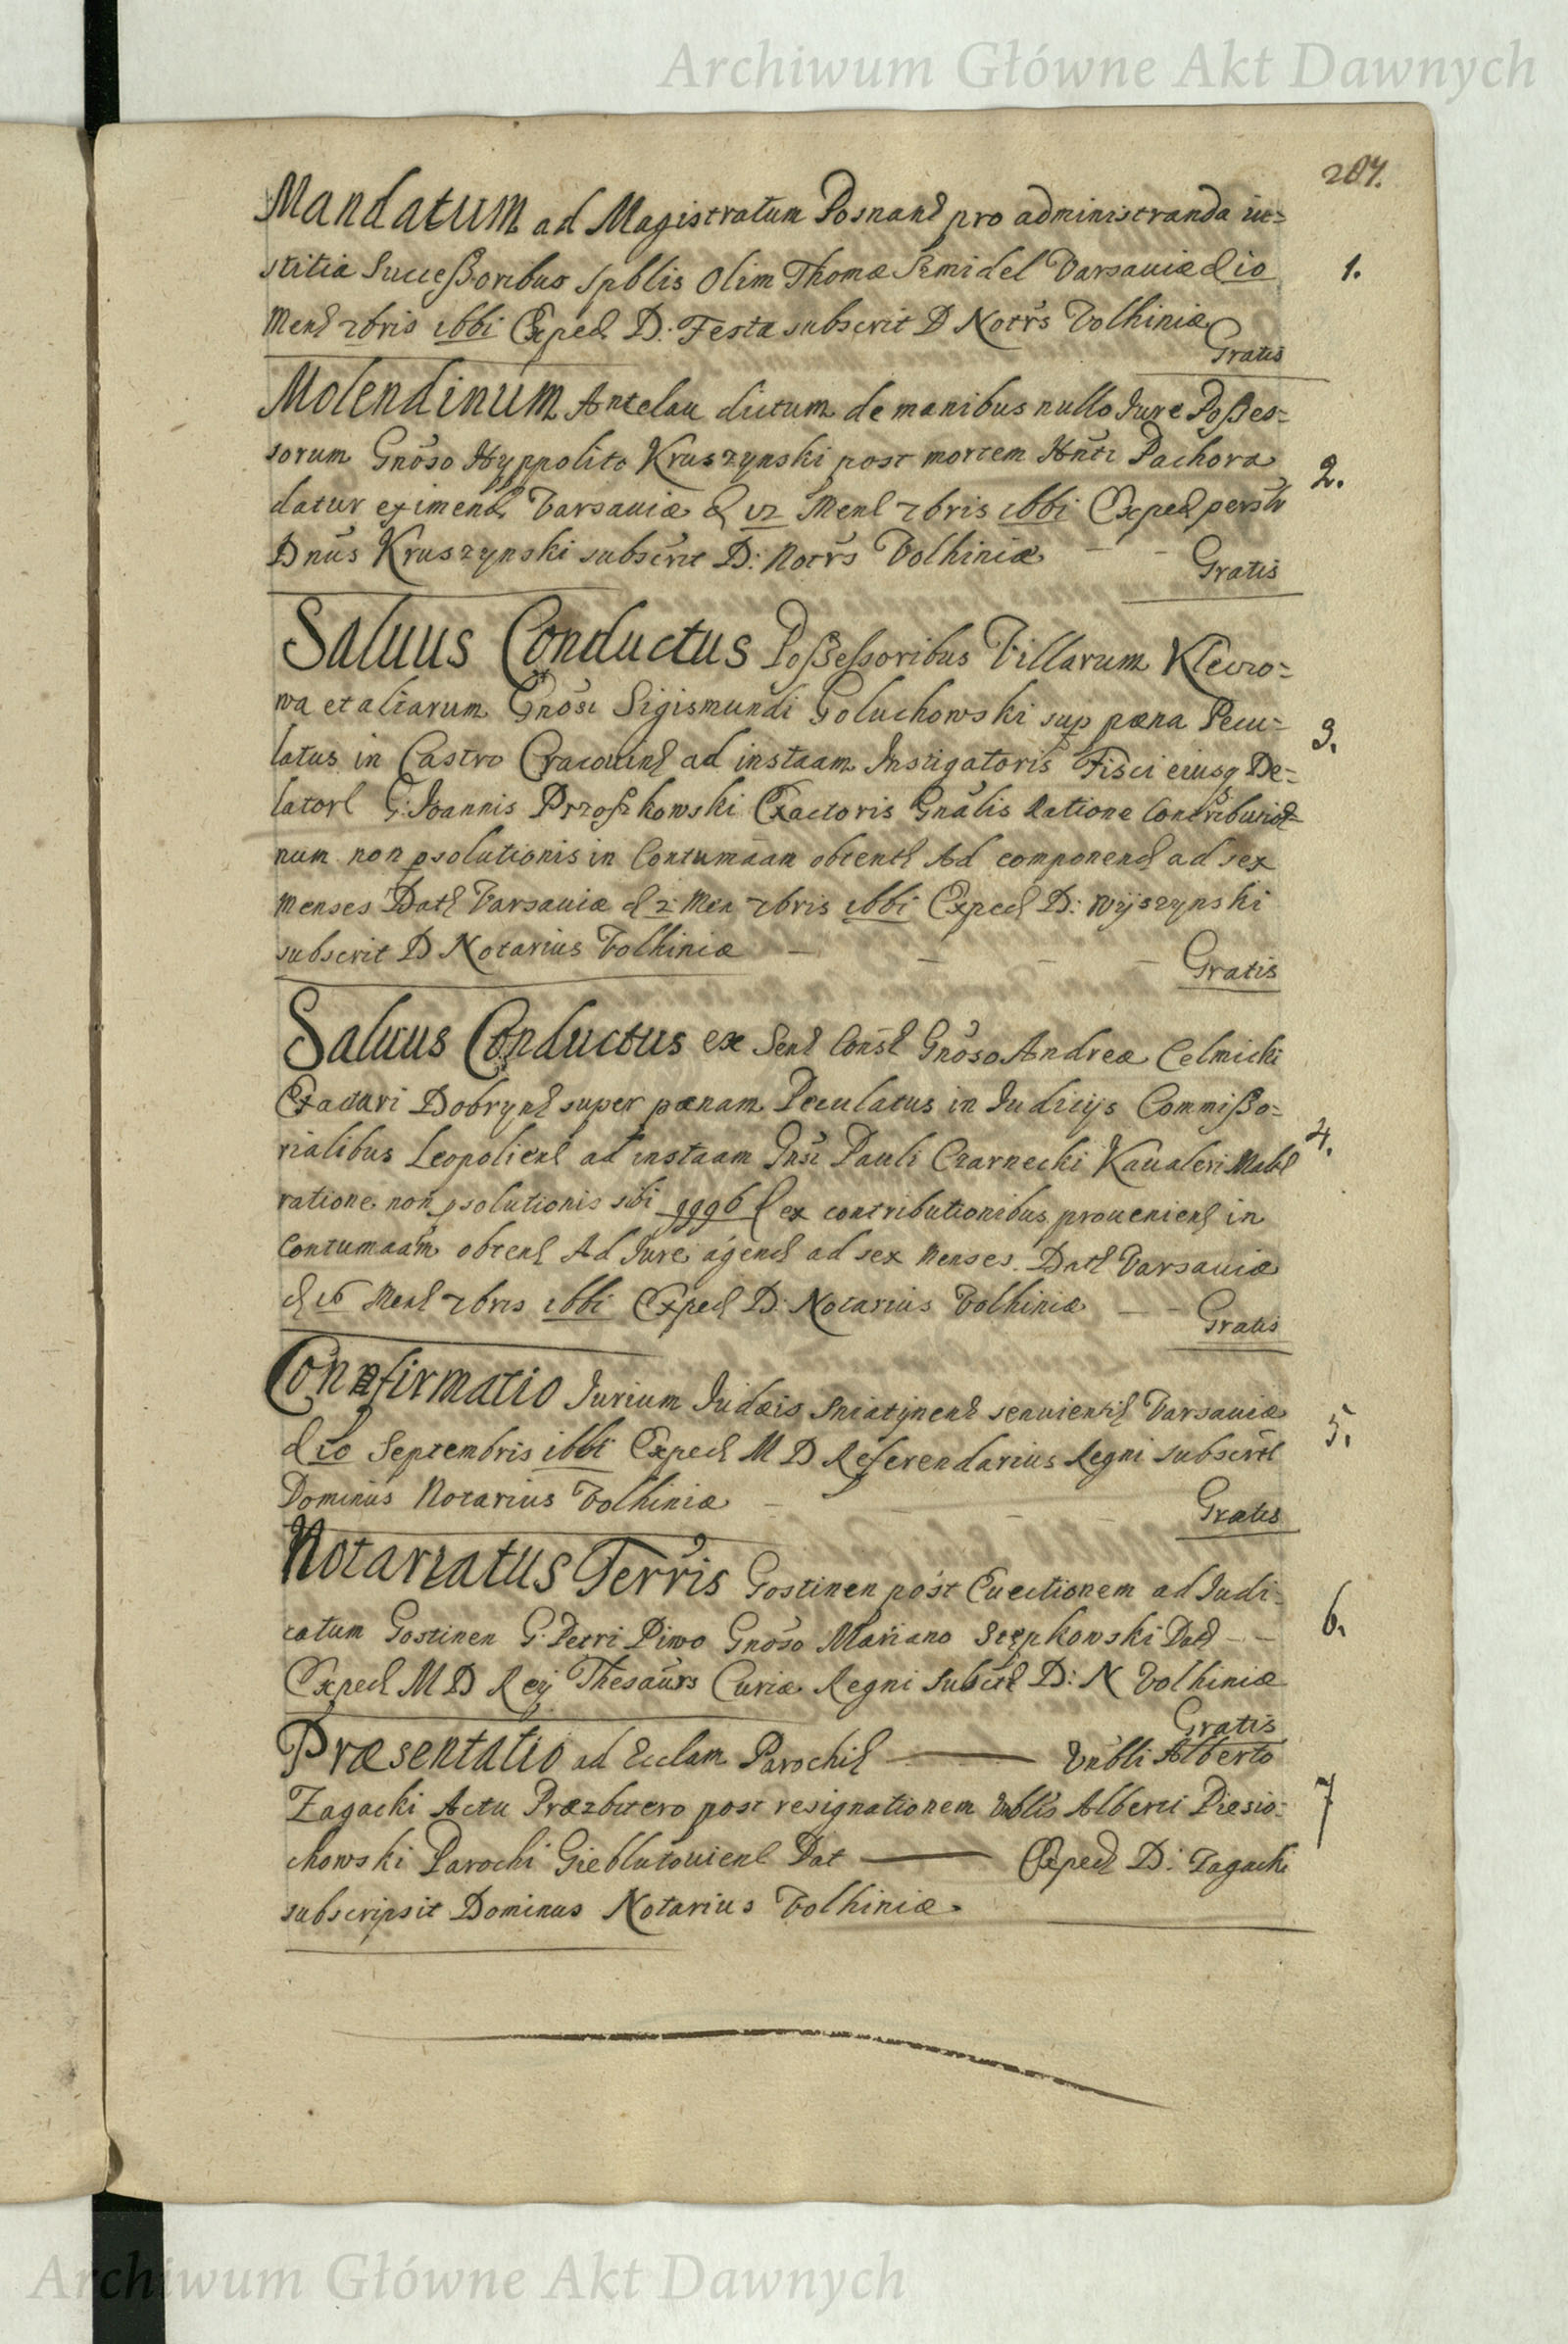 Archiwum Główne Akt Dawnych
207.
Mandatum ad Magistratum Posnanł pro administranda iu=
stitia Successoribus Spblis Olim Thomæ Smidel Varsaviæ d 10 1.
Menł 7bris 1661 Exped D: Festa subscrit D Notrs Volhiniæ
Gratis
Molendinum Antelau dictum de manibus nullo Jure Posses=
sorum Gnoso Hyppolito Kruszynski post mortem Hnti Pachora 2.
datur eximend Varsaviæ d 12 Menł 7bris 1661 Exped perstr
Dnus Kruszynski subscrit D: Notrs Volhiniæ - - Gratis
Salvus Conductus Possessoribus Villarum Klewo=
wa et aliarum Gnosi Sigismundi Goluchowski sup pæna Pecu= 3.
latus in Castro Cracovienł ad instaam Instigatoris Fisci eiusq De=
latorł G: Joannis Przoszkowski Exactoris Gnalis Ratione Contributio=
num non psolutionis in Contumaam obtentł Ad componend ad sex
menses Datł Varsaviæ d 2 Men 7bris 1661 Exped D: Wyszynski
subscrit D Notarius Volhiniæ - - - - Gratis
Salvus Conductus ex Senł Consł Gnoso Andreæ Celmicki
Exactori Dobrynł super pænam Peculatus in Judicijs Commisso=
rialibus Leopolienł ad instaam Gnsi Pauli Czarnecki Kavaleri Małł 4.
ratione non psolutionis sibi 9996 f ex contributionibus provenienł in
Contumaam obtenł Ad Jure agend ad sex Menses. Datł Varsaviæ
d 16 Menł 7bris 1661 Exped D: Notarius Volhiniæ - - Gratis
Confirmatio Jurium Judæis Sniatynenł servientł Varsaviæ
d 10 Septembris 1661 Exped M D Referendarius Regni subscrit 5.
Dominus Notarius Volhiniæ - - - - Gratis
Notariatus Terris Gostinen post Evectionem ad Judi=
catum Gostinen G: Petri Piwo Gnoso Mariano Stępkowski Datł - - 6.
Exped M D Rey Thesaurs Curiæ Regni Subscrit D: N Volhiniæ
Gratis
Præsentatio ad Ecclam Parochił — Vnbli Alberto
Zagacki Actu Præzbitero post resignationem Vnblis Alberti Piesio= 7
chowski Parochi Gieblutovienł Dat — Exped D: Zagacki
subscripsit Dominus Notarius Volhiniæ.
Archiwum Główne Akt Dawnych